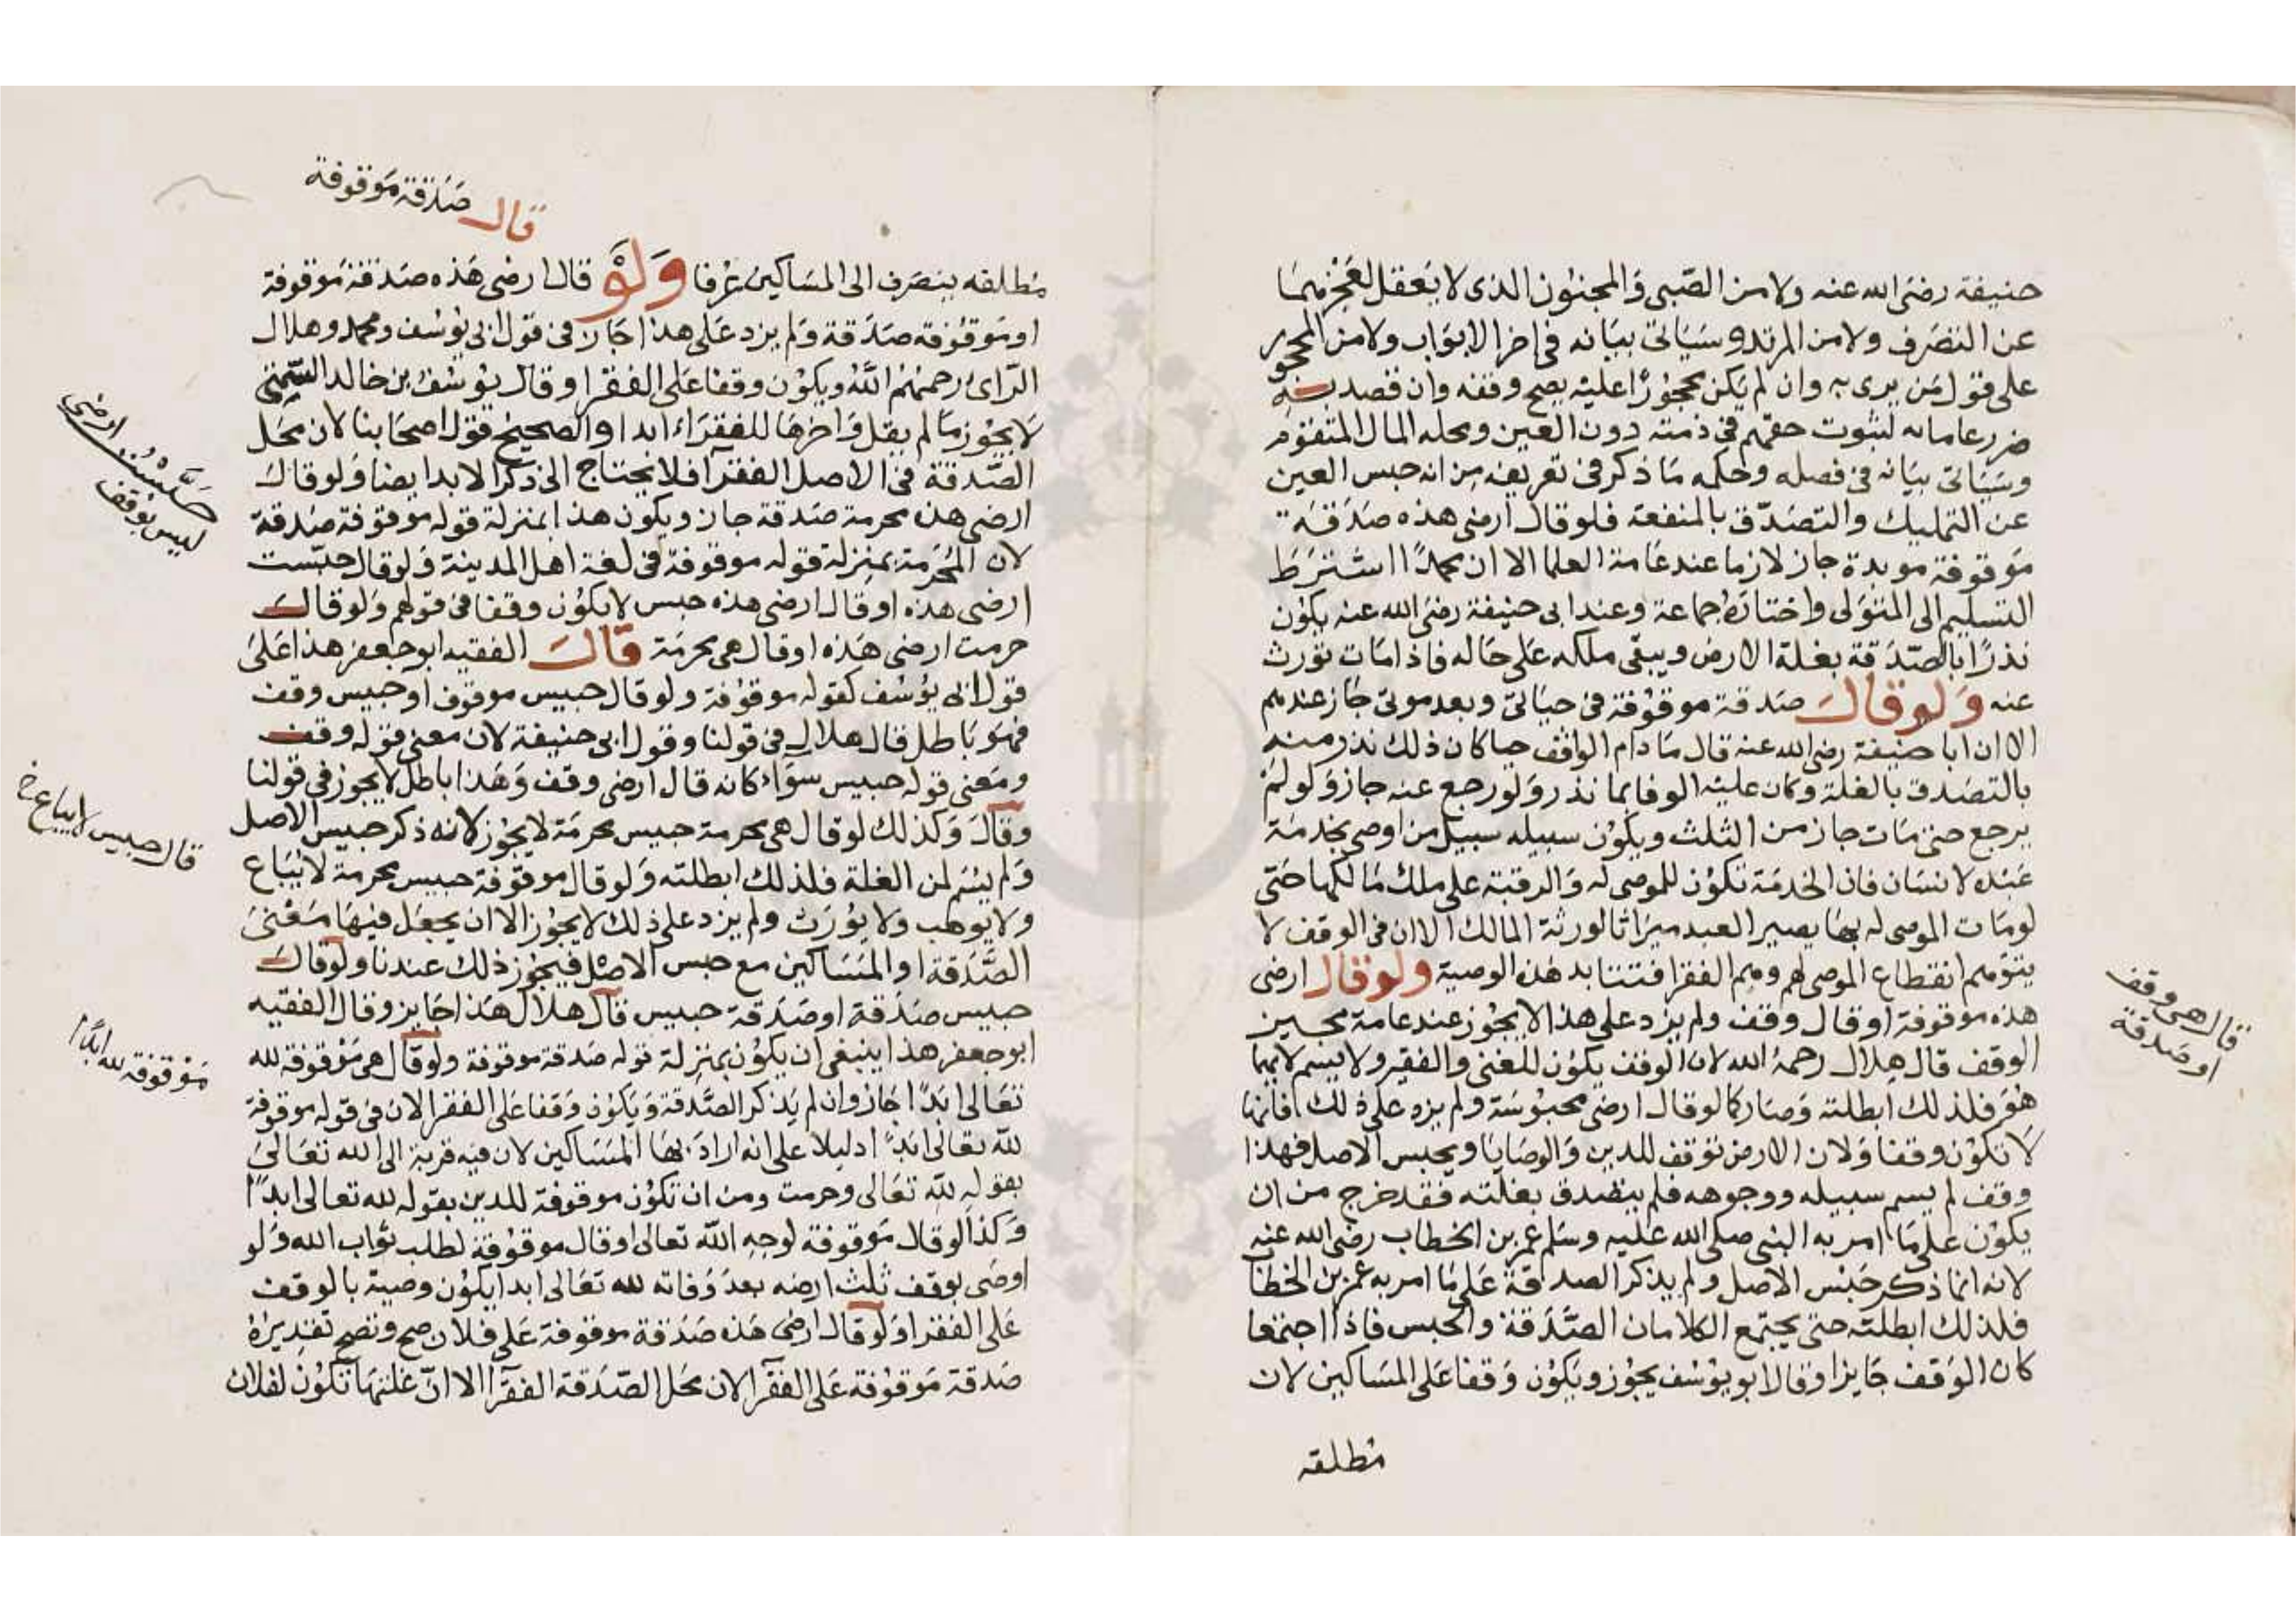 حنيفة رضى الله عنه ولا من الصبى والمجنون الذى لا يعقل لعجزهما
عن التصرف ولا من المرتد وسياتى بيانه فى اخر الابواب ولا من المحجور
على قول من يرى به وان لم يكن محجورا عليه يصح وقفه وان قصد به
ضرر غامائه لثبوت حقهم فى ذمته دون العين ومحله المال المتقوم
وسياتى بيانه فى فصله وحكمه ما ذكر فى تعريفه من انه حبس العين
عن التمليك والتصدق بالمنفعة فلو قال ارضى هذه صدقة
موقوفة موبدة جاز لازما عند عامة العلما الا ان محمدا اشترط
التسليم الى المتولى واختاره جماعة وعند ابى حنيفة رضى الله عنه يكون
نذرا بالصدقة بغلة الارض ويبقى ملكه على حاله فاذا مات تورث
عنه ولو قال صدقة موقوفة فى حياتى وبعد موتى جاز عندهم
الا ان ابا حنيفة رضى الله عنه قال ما دام الواقف حيا كان ذلك نذر منه
بالتصدق بالغلة وكان عليه الوفا بما نذر ولو رجع عنه جاز ولو لم
يرجع حتى مات جاز من الثلث ويكون سبيله سبيل من اوصى بخدمة
عبده لانسان فان الخدمة تكون للموصى له والرقبة على ملك مالكها حتى
لو مات الموصى له بها يصير العبد ميراثا لورثة المالك الا ان فى الوقف لا
يتوهم انقطاع الموصى لهم وهم الفقرا فتتابد هذه الوصية ولو قال ارضى
هذه موقوفة او قال وقف ولم يزد على هذا لا يجوز عند عامة مجيزين
الوقف قال هلال رحمه الله لان الوقف يكون للغنى والفقير ولا يسم لايهما
هو فلذلك ابطلته وصار كما لو قال ارضى محبوسة ولم يزد على ذلك فانها
لا تكون وقفا ولان الارض توقف للدين والوصايا ويحبس الاصل فهذا
وقف لم يسم سبيله ووجوهه فلم يتصدق بغلته فقد خرج من ان
يكون على ما امر به النبى صلى الله عليه وسلم عمر بن الخطاب رضى الله عنه
لانه انما ذكر حبس الاصل ولم يذكر الصدقة على ما امر به عمر بن الخطا
فلذلك ابطلته حتى يجتمع الكلامان الصدقة والحبس فاذا اجتمعا
كان الوقف جايزا وقال ابو يوسف يجوز ويكون وقفا على المساكين لان
مطلقه
قال هى وقف
او صدقة
قال صدقة موقوفة
مطلقه ينصرف الى المساكين عرفا ولو قال ارضى هذه صدقة موقوفة
او موقوفة صدقة ولم يزد على هذا جاز فى قول ابى يوسف ومحمد وهلال
الراى رحمهم الله ويكون وقفا على الفقرا وقال يوسف بن خالد السمتى
لا يجوز ما لم يقل واخرها للفقراء ابدا والصحيح قول اصحابنا لان محل
الصدقة فى الاصل الفقرا فلا يحتاج الى ذكر الابد ايضا ولو قال
ارضى هذه محرمة صدقة جاز ويكون هذا بمنزلة قوله موقوفة صدقة
لان المحرمة بمنزلة قوله موقوفة فى لغة اهل المدينة ولو قال حبست
ارضى هذه او قال ارضى هذه حبس لا يكون وقفا فى قولهم ولو قال
حرمت ارضى هذه او قال هى محرمة قال الفقيه ابو جعفر هذا على
قول ابى يوسف كقوله موقوفة ولو قال حبيس موقوف او حبيس وقف
فهو باطل قال هلال فى قولنا وقول ابى حنيفة لان معنى قوله وقف
ومعنى قوله حبيس سواء كانه قال ارضى وقف وهذا باطل لا يجوز فى قولنا
وقال وكذلك لو قال هى محرمة حبيس محرمة لا يجوز لانه ذكر حبيس الاصل
ولم يسم لمن الغلة فلذلك ابطلته ولو قال موقوفة حبيس محرمة لا يباع
ولا يوهب ولا يورث ولم يزد على ذلك لا يجوز الا ان يجعل فيها معنى
الصدقة او المساكين مع حبس الاصل فيجوز ذلك عندنا ولو قال
حبيس صدقة او صدقة حبيس قال هلال هذا جايز وقال الفقيه
ابو جعفر هذا ينبغى ان يكون بمنزلة قوله صدقة موقوفة ولو قال هى موقوفة لله
تعالى ابدا جاز وان لم يذكر الصدقة ويكون وقفا على الفقرا لان فى قوله موقوفة
لله تعالى ابدا دليلا على انه اراد بها المساكين لان فيه قربة الى الله تعالى
بقوله لله تعالى وحرمت ومن ان تكون موقوفة للدين بقوله لله تعالى ابدا
وكذا لو قال موقوفة لوجه الله تعالى او قال موقوفة لطلب ثواب الله ولو
اوصى بوقف ثلث ارضه بعد وفاته لله تعالى ابدا يكون وصية بالوقف
على الفقرا ولو قال ارضى هذه صدقة موقوفة على فلان صح وتصح تقديره
صدقة موقوفة على الفقرا لان محل الصدقة الفقرا الا ان غلتها تكون لفلان
حبست ارضى
ليس بوقف
قال حبيس لا يباع الخ
موقوفة لله ابدا